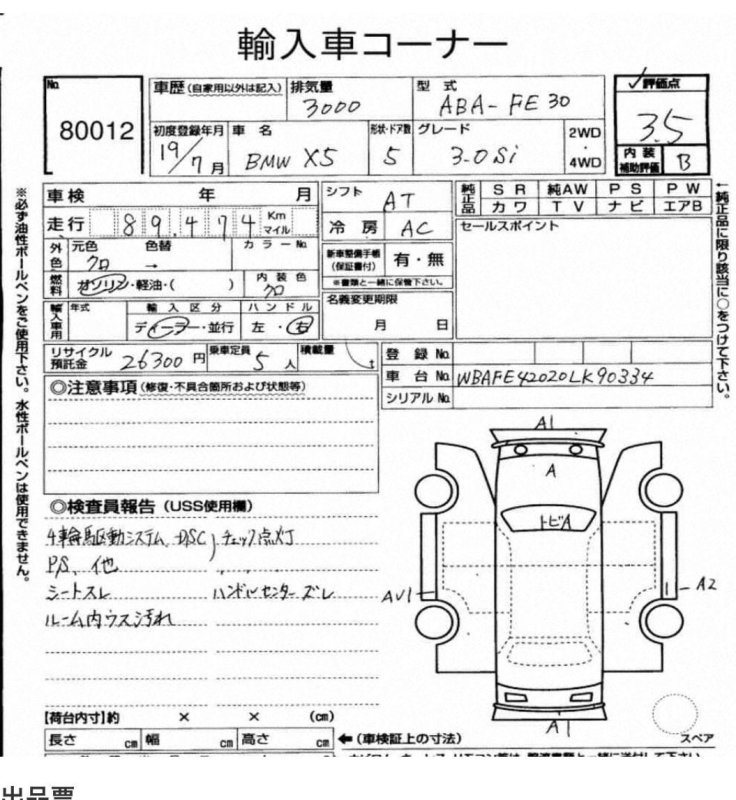 輸入車コーナー
No. 80012
車歴 (自家用以外は記入) 排気量 3000 型式 ABA-FE30
初度登録年月 19/7月 車名 BMW X5 形状・ドア数 5 グレード 3.0Si 2WD・4WD
評価点 3.5
内装補助評価 B
車検 年 月 シフト AT
走行 89,474 Km マイル 冷房 AC
純正品 SR 純AW PS PW
カワ TV ナビ エアB
セールスポイント
外色 元色 クロ 色替 → カラーNo.
新車整備手帳(保証書付) 有・無
※書類と一緒に保管下さい。
燃料 ガソリン・軽油・( ) 内装色 クロ
名義変更期限 月 日
輸入車用 年式 輸入区分 ディーラー・並行 ハンドル 左・右
リサイクル預託金 26300円 乗車定員 5人 積載量 t
登録No.
車台No. WBAFE42020LK90334
シリアルNo.
◎注意事項(修復・不具合箇所および状態等)
◎検査員報告(USS使用欄)
4輪駆動システム、DSC チェック点灯
P/S、他
シートスレ ハンドルセンターズレ
ルーム内ウス汚れ
A1
A
トビA
AU1
A2
A1
スペア
【荷台内寸】約 × × (cm)
長さ cm 幅 cm 高さ cm
←(車検証上の寸法)
※必ず油性ボールペンをご使用下さい。水性ボールペンは使用できません。
←純正品に限り該当に○をつけて下さい。
出品票